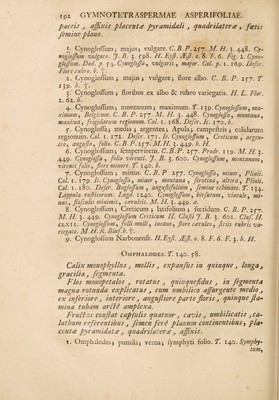 192 GYMNOTETRASPERMAE ASPERIFOLIAE.
pacris, affixis placentæ pyramidali, quadrilateræ, fœtis
semine plano.
1. Cynoglossum, majus, vulgare. C. B. P. 257. M. H. 3. 448. Cy-
noglossum vulgare. J. B. 3. 598. H. Eyst. Æst. o. 8. F. 6. Fig. 1. Cyno-
glossum. Dod. p. 54. Cynoglossa, vulgaris, major. Col. p. 1. 169. Descr.
Flore rubro. ♄. ?.
2. Cynoglossum, majus, vulgare, flore albo. C. B. P. 257. T.
139.
3. Cynoglossum, floribus ex albo & rubro variegatis. H. L. Flor.
2. 62.
4. Cynoglossum, montanum, maximum. T. 139. Cynoglossum, ma-
ximum, Belgicum. C. B. P. 257. M. H. 3. 448. Cynoglossa, montana,
maxima, frigidarum regionum. Col. 1. 168. Descr. Ic. 170.
5. Cynoglossa, media, argentea, Apula, campestris, calidarum
regionum. Col. 1. 172. Descr. 171. Ic. Cynoglossum, Creticum, argen-
teo, angusto, folio. C. B. P. 257. M. H. 3. 449.
6. Cynoglossum, sempervirens. C. B. P. 257. Prodr. 119. M. H. 3.
449. Cynoglossa, folio virenti. J. B. 3. 600. Cynoglossum, montanum,
virenti folio, flore minore. T. 140.
7. Cynoglossum, minus. C. B. P. 257. Cynoglossa, minor, Plinii.
Col. 1. 179. Ic. Cynoglossa, minor, montana, serotina, altera, Plinii.
Col. 1. 180. Descr. Buglossum, angustifolium, semine echinato. T. 134.
Lappula rusticorum. Lugd. 1240. Cynoglossum, hirsutum, virnale, mi-
nus, flosculis minimis, cœrulesc. M. H. 3. 449.
8. Cynoglossum, Creticum, latifolium, fœtidum. C. B. P. 257.
M. H. 3. 449. Cynoglossum Creticum II. Clusii J. B. 3. 601. Clus. H.
CLXII. Cynoglossum, folii molli, incano, flore cœruleo, striis rubris va-
riegato. M. H. R. Blæs.
9. Cynoglossum Narbonense. H. Eyst. Æst. o. 8. F. 6. F. 3.
OMPHALODES. T. 140. 58.
Calix monophyllus, mollis, expansus in quinque, longa,
gracilia, segmenta.
Flos monopetalos, rotatus, quinquefidus, in segmenta
magna rotunda explicatus, cum umbilico assurgente medio,
ex inferiore, interiore, angustiore parte floris, quinque sta-
mina tubam arctè amplexa.
Fructus constat capsulis quatuor, cavis, umbilicatis, ca-
lathum referentibus, semen ferè planum continentibus; pla-
centæ pyramidatæ, quadrilateræ, affixis.
1. Omphalodes, pumila, verna, symphyti folio. T. 140. Symphy-
tum,